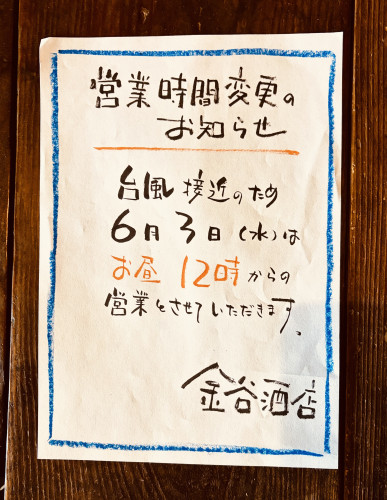 営業時間変更の
お知らせ
台風接近のため
6月3日(水)は
お昼12時からの
営業とさせていただきます。
金谷酒店